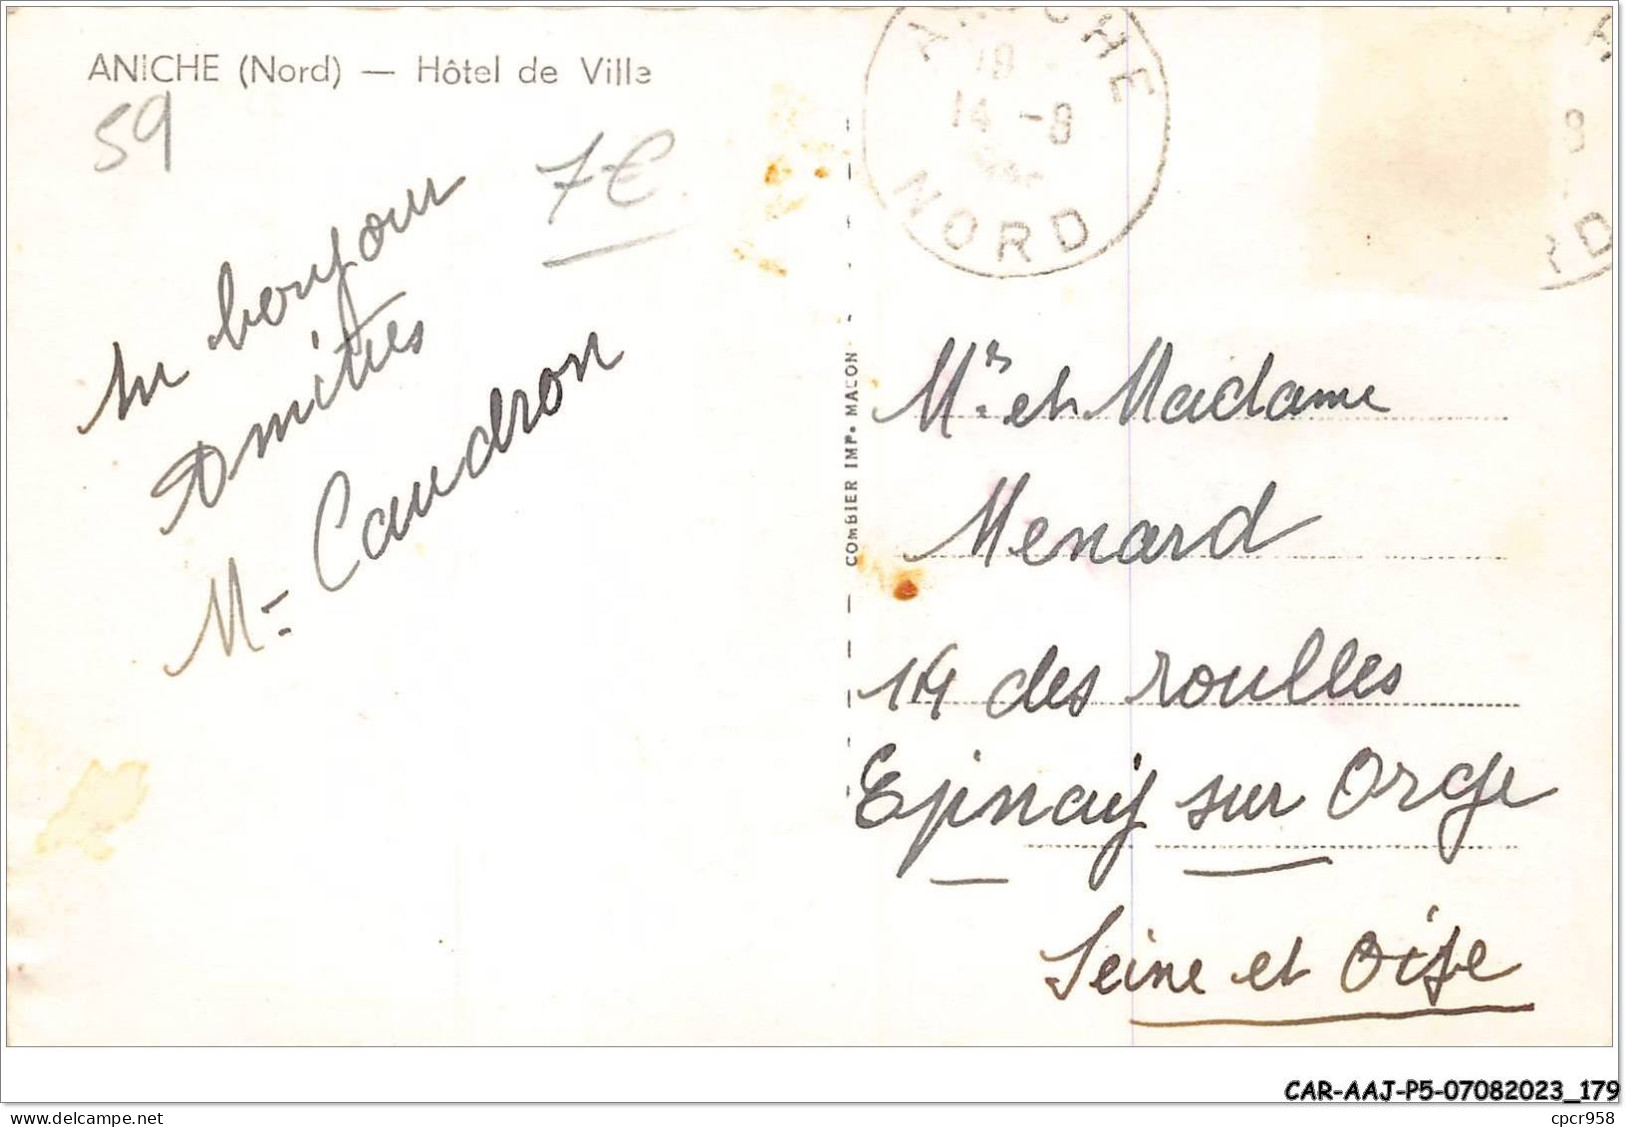 ANICHE (Nord) — Hôtel de Ville
59
7€
un bonjour
amitiés
M= Caudron
COMBIER IMP. MACON
ANICHE
19
14 -8
NORD
8
RD
Mrs et Madame
Menard
14 des roulles
Epinay sur Orge
Seine et Oise
CAR-AAJ-P5-07082023_179
www.delcampe.net
cpcr958